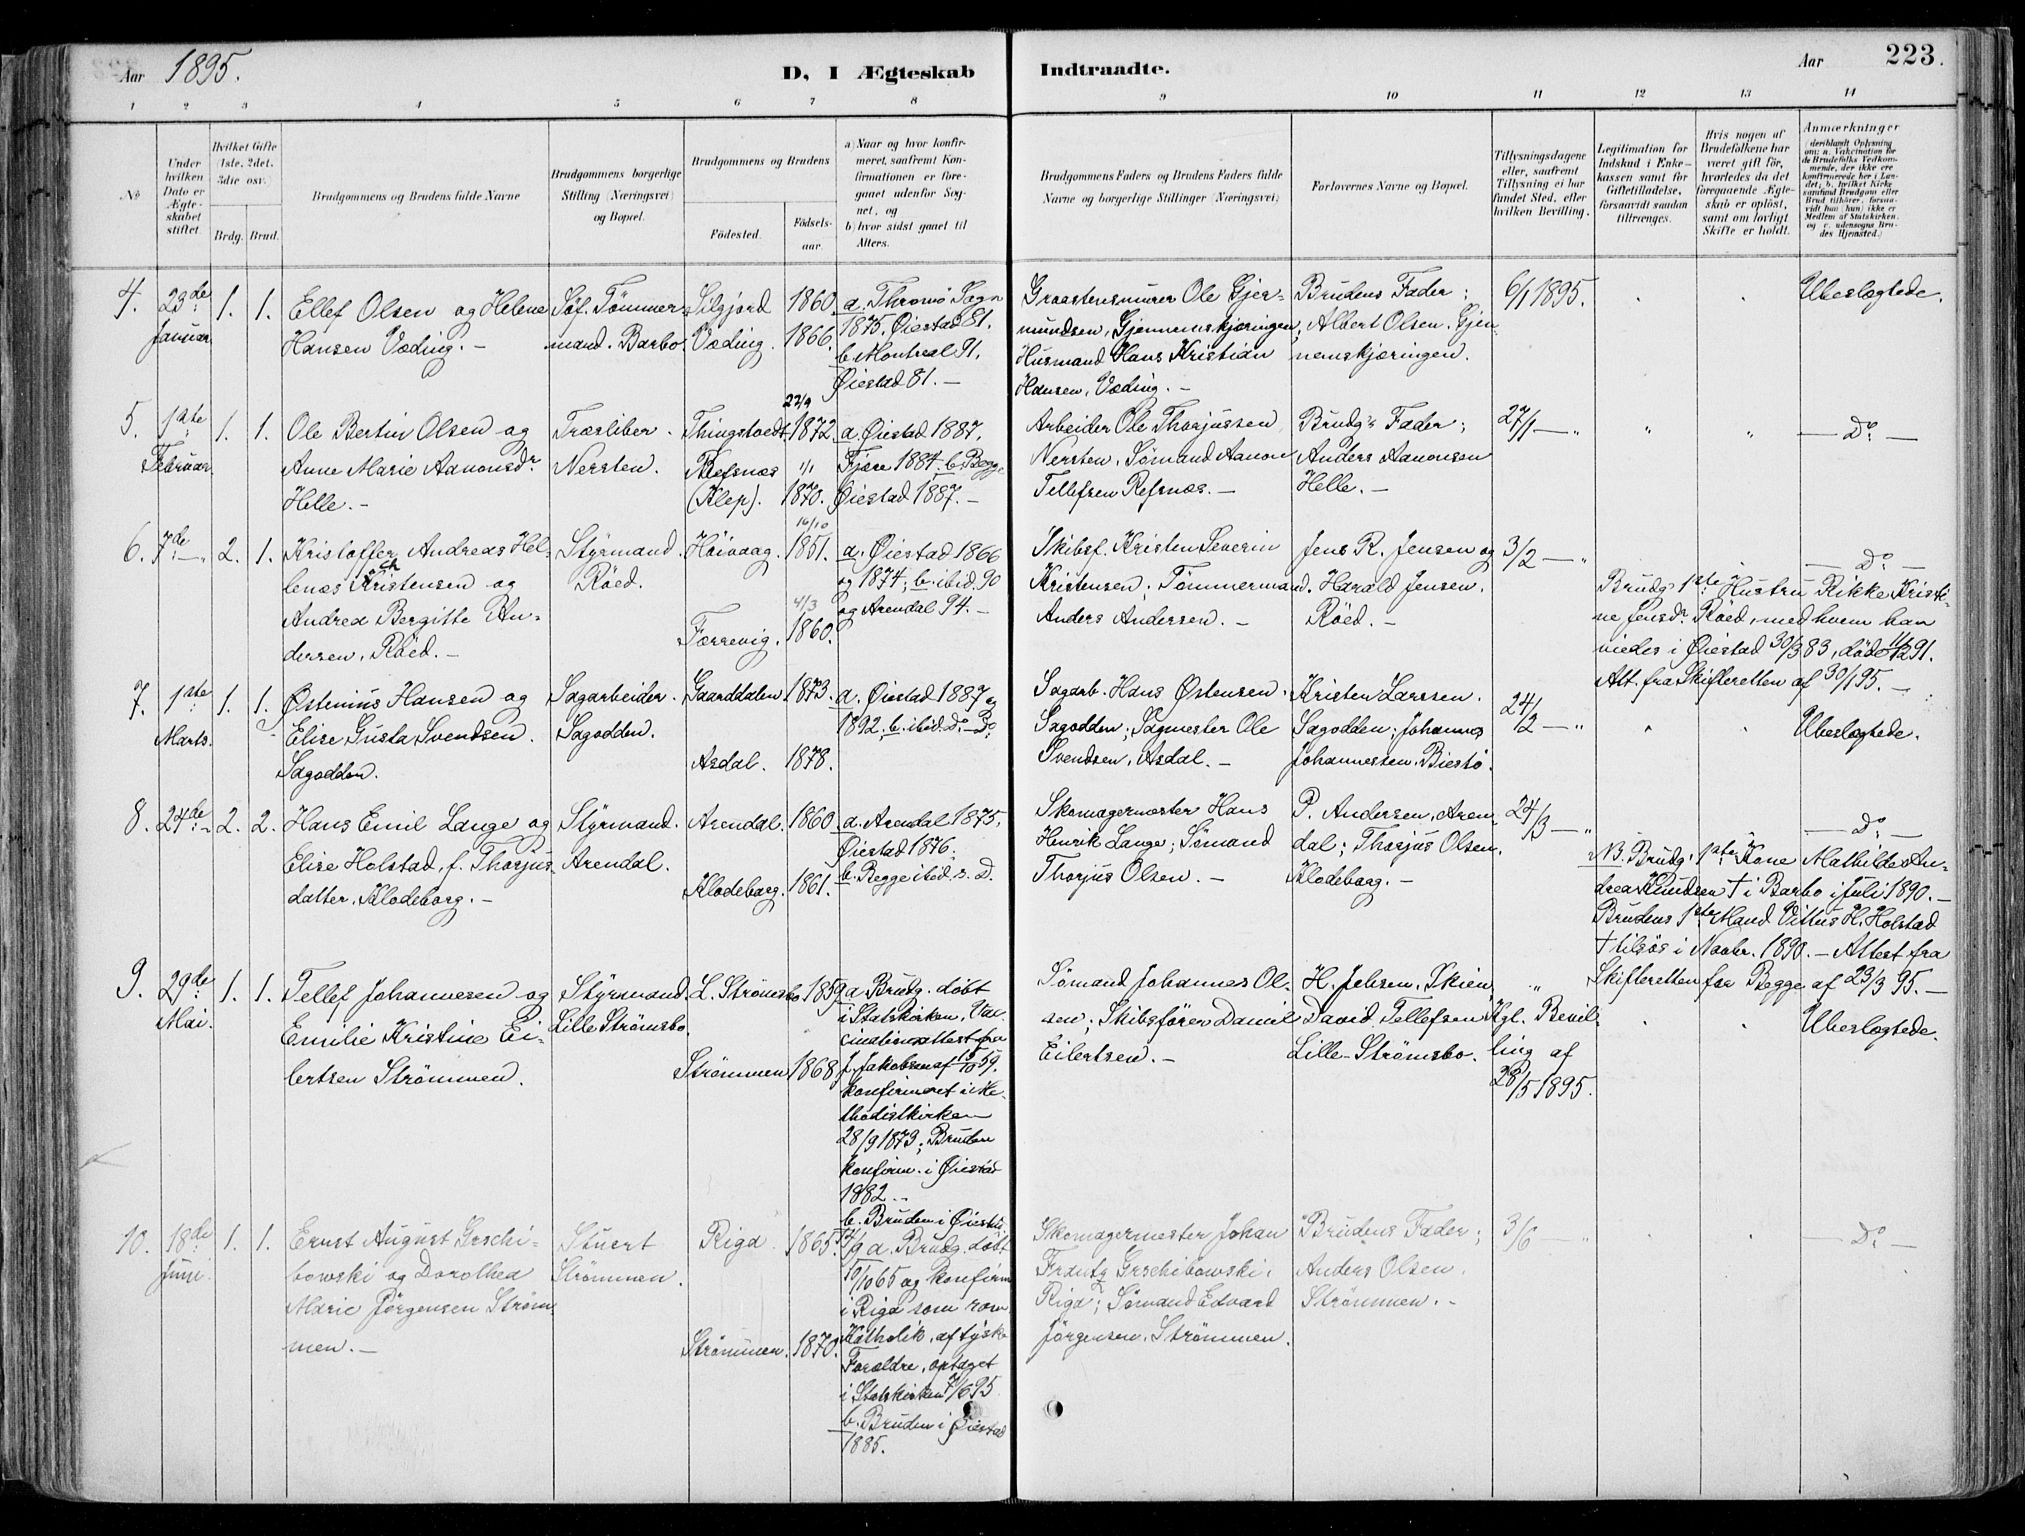 Aar 1895.
D, I Ægteskab
Indtraadte.
Aar
223.
1 2 3 4 5 6 7 8 9 10 11 12 13 14
No
Under hvilken Dato er Ægteskabet stiftet.
Hvilket Gifte 1ste, 2det, 3die osv.
Brdg. Brud.
Brudgommens og Brudens fulde Navne
Brudgommens borgerlige Stilling (Næringsvei) og Bopæl.
Brudgommens og Brudens
Fødested.
Fødselsaar.
a) Naar og hvor konfirmeret, saafremt Konfirmationen er foregaaet udenfor Sognet, og
b) hvor sidst gaaet til Alters.
Brudgommens Faders og Brudens Faders fulde Navne og borgerlige Stillinger (Næringsvei)
Forlovernes Navne og Bopæl.
Tillysningsdagene eller, saafremt Tillysning ei har fundet Sted, efter hvilken Bevilling.
Legitimation for Indskud i Enkekassen samt for Giftetilladelse, forsaavidt saadan tiltrænges.
Hvis nogen af Brudefolkene har været gift før, hvorledes da det foregaaende Ægteskab er opløst, samt om lovligt Skifte er holdt.
Anmærkninger
(deriblandt Oplysning om: a. Vakcination for de Brudefolks Vedkommende, der ikke ere konfirmerede her i Landet; b. hvilket Kirkesamfund Brudgom eller Brud tilhører, forsaavidt han (hun) ikke er Medlem af Statskirken, og c. udensogns Brudes Hjemsted.)
4. 23de Januar. 1. 1.
Ellef Olsen og Helene
Hansen Væding. -
Søf. Tømmer-
mand. Barbo
Silgjord 1860.
Væding. 1866.
a. Thromø Sogn
1875, Øiestad 81.
b. Montreal 91,
Øiestad 81. -
Graastensmurer Ole Gjer-
mundsen, Gjennemskjæringen;
Husmand Hans Kristian
Hansen, Væding. -
Brudens Fader;
Albert Olsen. Gjen-
nemskjæringen.
6/1 1895.
Ubeslægtede.
5. 1ste Februar. 1. 1.
Ole Bertin Olsen og
Anne Marie Aanonsdr
Helle. -
Træsliber.
Nersten.
Thingstvedt 22/9 1872.
Refsnæs
(Klep). 1/1 1870.
a. Øiestad 1887,
Fjære 1884. b. Begge
Øiestad 1887. -
Arbeider Ole Thorjussen
Nersten, Sømand Aanon
Tellefsen Refsnæs. -
Brudg's Fader;
Anders Aanonsen
Helle. -
27/1 - "
" "
- Do -
6. 7de - 2. 1.
Kristoffer Andreas Hel-
lenæs Kristensen og
Andrea Bergitte An-
dersen, Røed. -
Styrmand.
Røed.
Høivaag. 16/10 1851.
Færrevig. 4/3 1860.
a. Øiestad 1866
og 1874; b. ibid. 90
og Arendal 94. -
Skibsf. Kristen Severin
Kristensen; Tømmermand
Anders Andersen. -
Jens R. Jensen og
Harald Jensen.
Røed. -
3/2 - "
- Do -
Brudg's 1ste Hustru Rikke Kristi-
ne Jensdr Røed, med hvem han
viedes i Øiestad 30/3 83, døde 11/2 91.
Att. fra Skifteretten af 30/1 95. -
7. 1ste Marts. 1. 1.
Østenius Hansen og
Elise Gusta Svendsen.
Sagodden.
Sagarbeider.
Sagodden.
Gaarddalen. 1873.
Asdal. 1878.
a. Øiestad 1887 og
1892, b. ibid. Do - Do.
Sagarb. Hans Østensen.
Sagodden; Sagmester Ole
Svendsen, Asdal. -
Kristen Larssen.
Sagodden; Johannes
Johannessen. Biestø.
24/2 - "
Ubeslægtede.
8. 24de - 2. 2.
Hans Emil Lange og
Elise Holstad, f. Thorjus-
datter, Klodeborg. -
Styrmand.
Arendal.
Arendal. 1860.
Klodeborg. 1861.
a. Arendal 1875,
Øiestad 1876.
b. Begge ibid. s. D.
Skomagermester Hans
Henrik Lange; Sømand
Thorjus Olsen. -
P. Andersen, Aren-
dal; Thorjus Olsen,
Klodeborg. -
24/3 - "
- Do -
NB. Brudg's 1ste Kone Mathilde An-
drea Knudsen † i Barbo i Juli 1890. -
Brudens 1ste Mand Vitus H. Holstad
† tilsøs i Novbr. 1890. - Attest fra
Skifteretten for Begge af 23/3 95. -
9. 29de Mai. 1. 1.
Tellef Johannesen og
Emilie Kristine Ei-
lertsen Strømmen.
Styrmand.
Lille Strømsbo.
L. Strømsbo 1859
Strømmen 1868
a. Brudg. døbt
i Statskirken, Vac-
cinationsattest fra
J. Jakobsen af 15/10 59.
konfirmeret i Me-
thodistkirken
28/9 1873; Bruden
konfirm. i Øiestad
1882. -
b. Bruden i Øiestad
Sømand Johannes Ol-
sen; Skibsfører Daniel
Eilertsen. -
H. Jebsen, Skien,
David Tellefsen
Lille-Strømsbo.
"
Kgl. Bevil-
ling af
28/5 1895.
Ubeslægtede.
10. 18de Juni. 1. 1.
Ernst August Grschi-
bowski og Dorothea
Marie Jørgensen Strøm-
men. -
Stuert
Strømmen.
Riga 1865.
Strømmen. 1870.
a. Brudg. døbt
10/10 65 og konfirm.
i Riga som rom.
Katholik, af tyske
Forældre, optaget
i Statskirken 7/6 95
b. Bruden i Øiestad
1885.
Skomagermester Johan
Frantz Grschibowski,
Riga; Sømand Edvard
Jørgensen, Strømmen.
Brudens Fader;
Anders Olsen.
Strømmen. -
3/6 "
- Do -